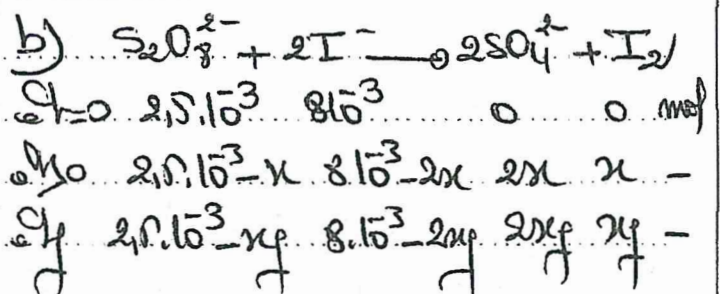 b) S₂O₈²⁻ + 2I⁻ → 2SO₄²⁻ + I₂
t=0 2,5.10⁻³ 8.10⁻³ 0 0 mol
t>0 2,5.10⁻³-x 8.10⁻³-2x 2x x -
tf 2,5.10⁻³-xf 8.10⁻³-2xf 2xf xf -